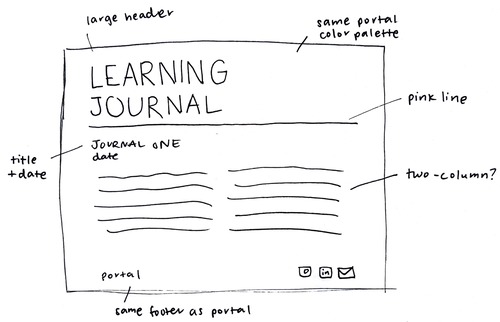 large header
same portal
color palette
LEARNING
JOURNAL
pink line
JOURNAL ONE
date
title
+ date
two-column?
portal
in
same footer as portal